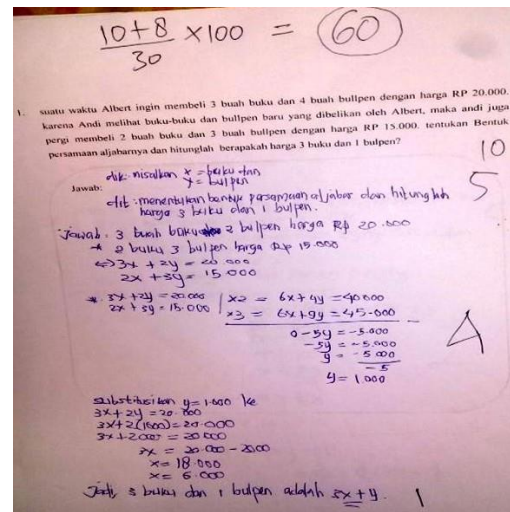 10+8
30
×100 = 60
1. suatu waktu Albert ingin membeli 3 buah buku dan 4 buah bullpen dengan harga RP 20.000.
karena Andi melihat buku-buku dan bullpen baru yang dibelikan oleh Albert, maka andi juga
pergi membeli 2 buah buku dan 3 buah bullpen dengan harga RP 15.000. tentukan Bentuk
persamaan aljabarnya dan hitunglah berapakah harga 3 buku dan 1 bulpen?
10
dik: misalkan x = buku dan
y = bulpen
Jawab:
5
dit: menentukan bentuk persamaan aljabar dan hitunglah
harga 3 buku dan 1 bulpen.
Jawab: 3 buah buku 2 bulpen harga Rp 20.000
* 2 buku 3 bulpen harga Rp 15.000
⇔ 3x + 2y = 20.000
2x + 3y = 15.000
* 3x + 2y = 20.000 | ×2 = 6x + 4y = 40000
2x + 3y = 15.000 | ×3 = 6x + 9y = 45.000
0 - 5y = -5.000
-5y = -5.000
y = -5000
-5
y = 1.000
4
substitusikan y = 1.000 ke
3x + 2y = 20.000
3x + 2(1000) = 20.000
3x + 2000 = 20.000
3x = 20.000 - 2000
x = 18.000
x = 6.000
Jadi, 3 buku dan 1 bulpen adalah 3x + y.
1